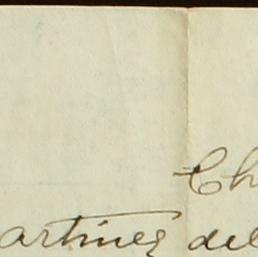 Ch
artinez del